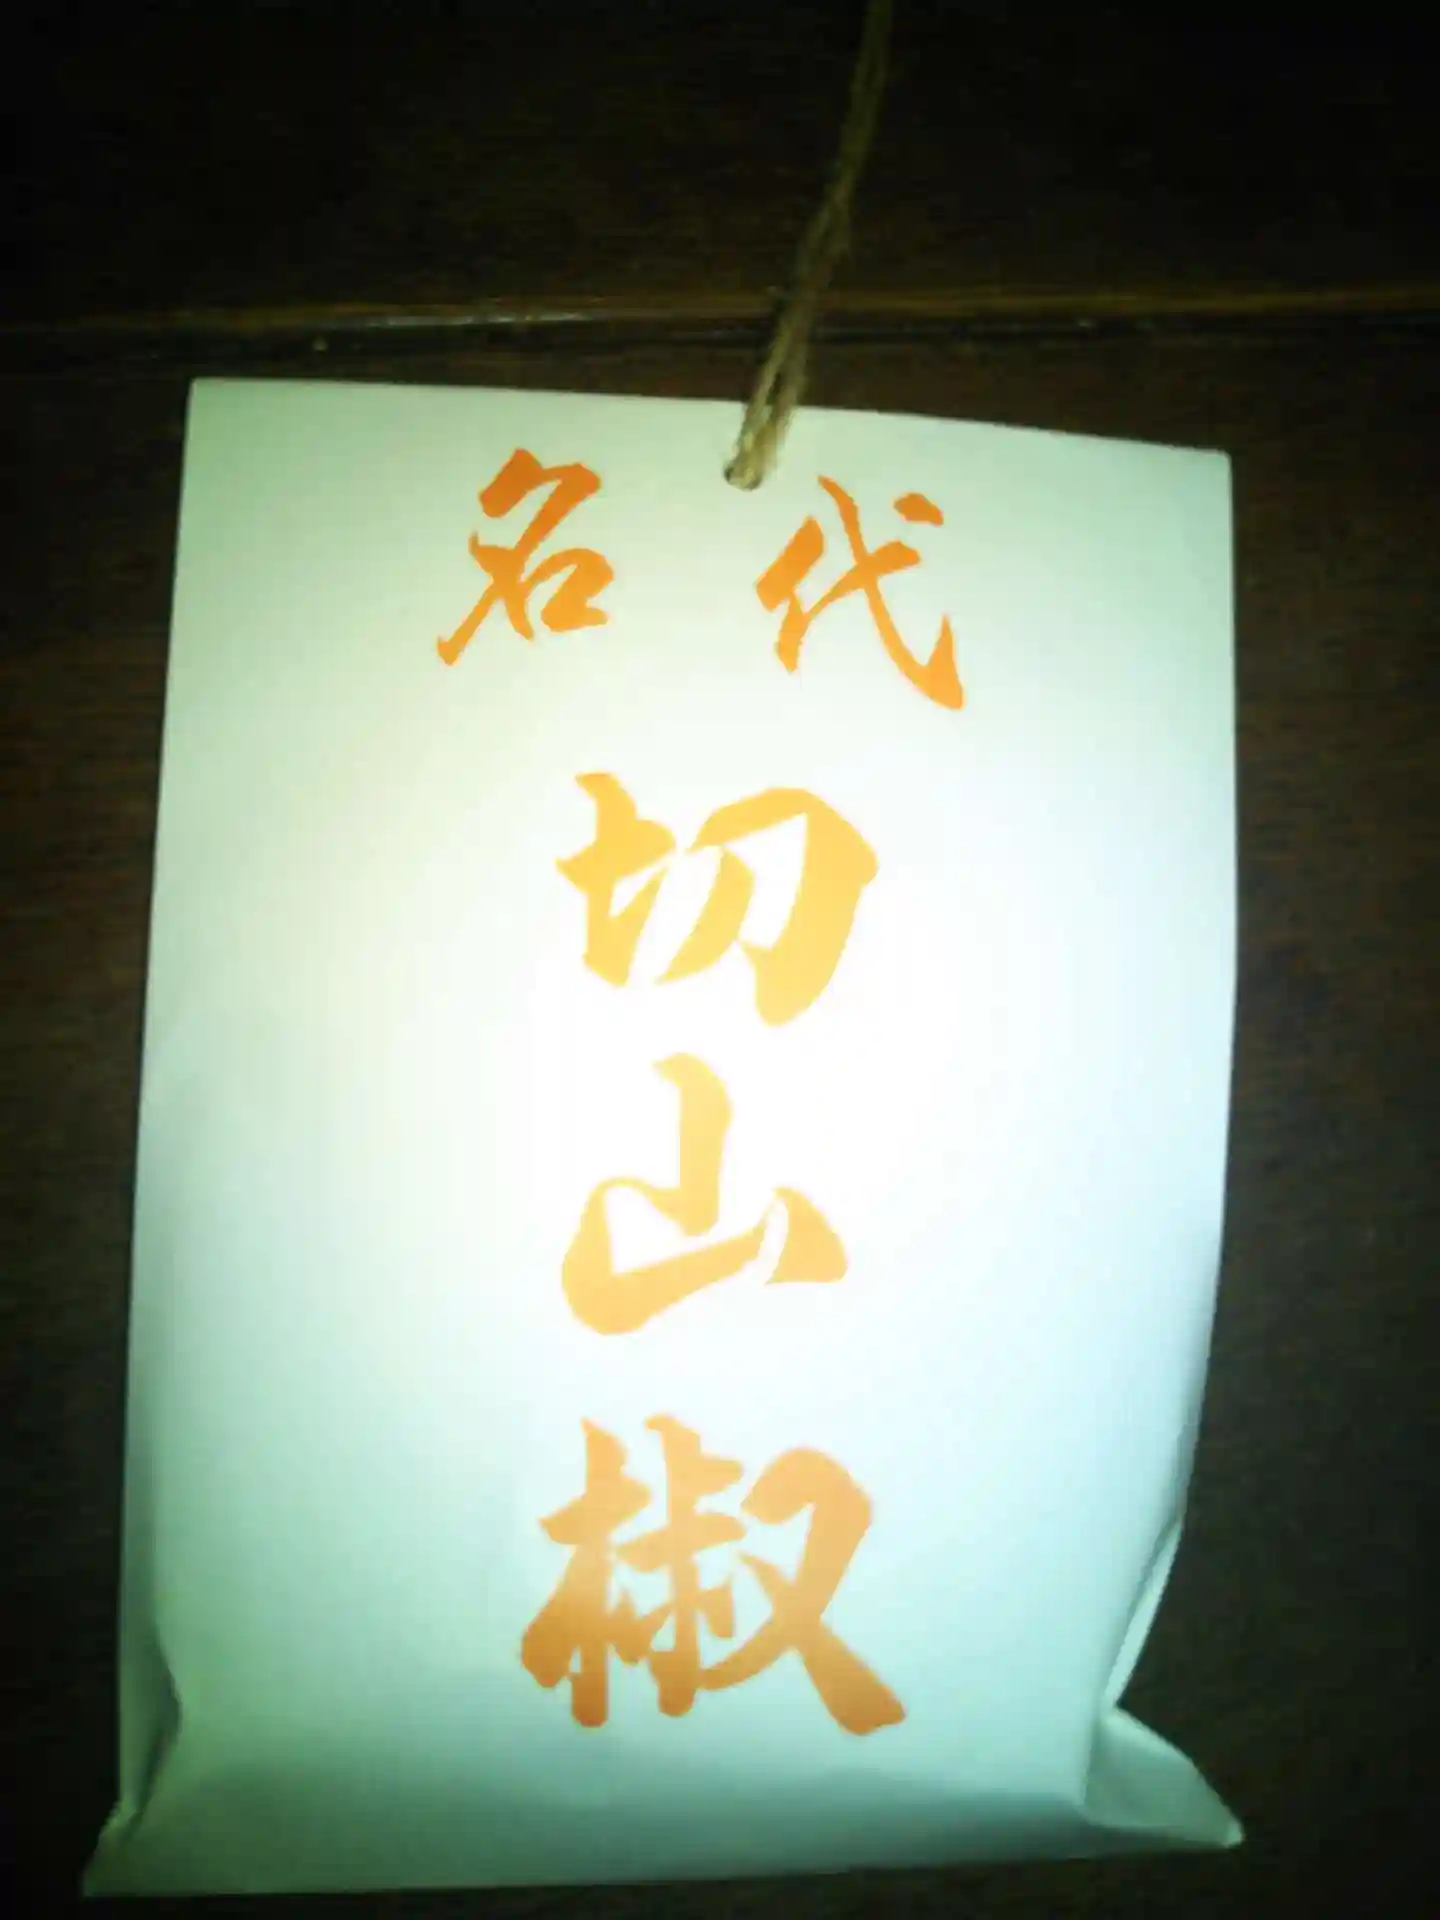 名代
切山椒